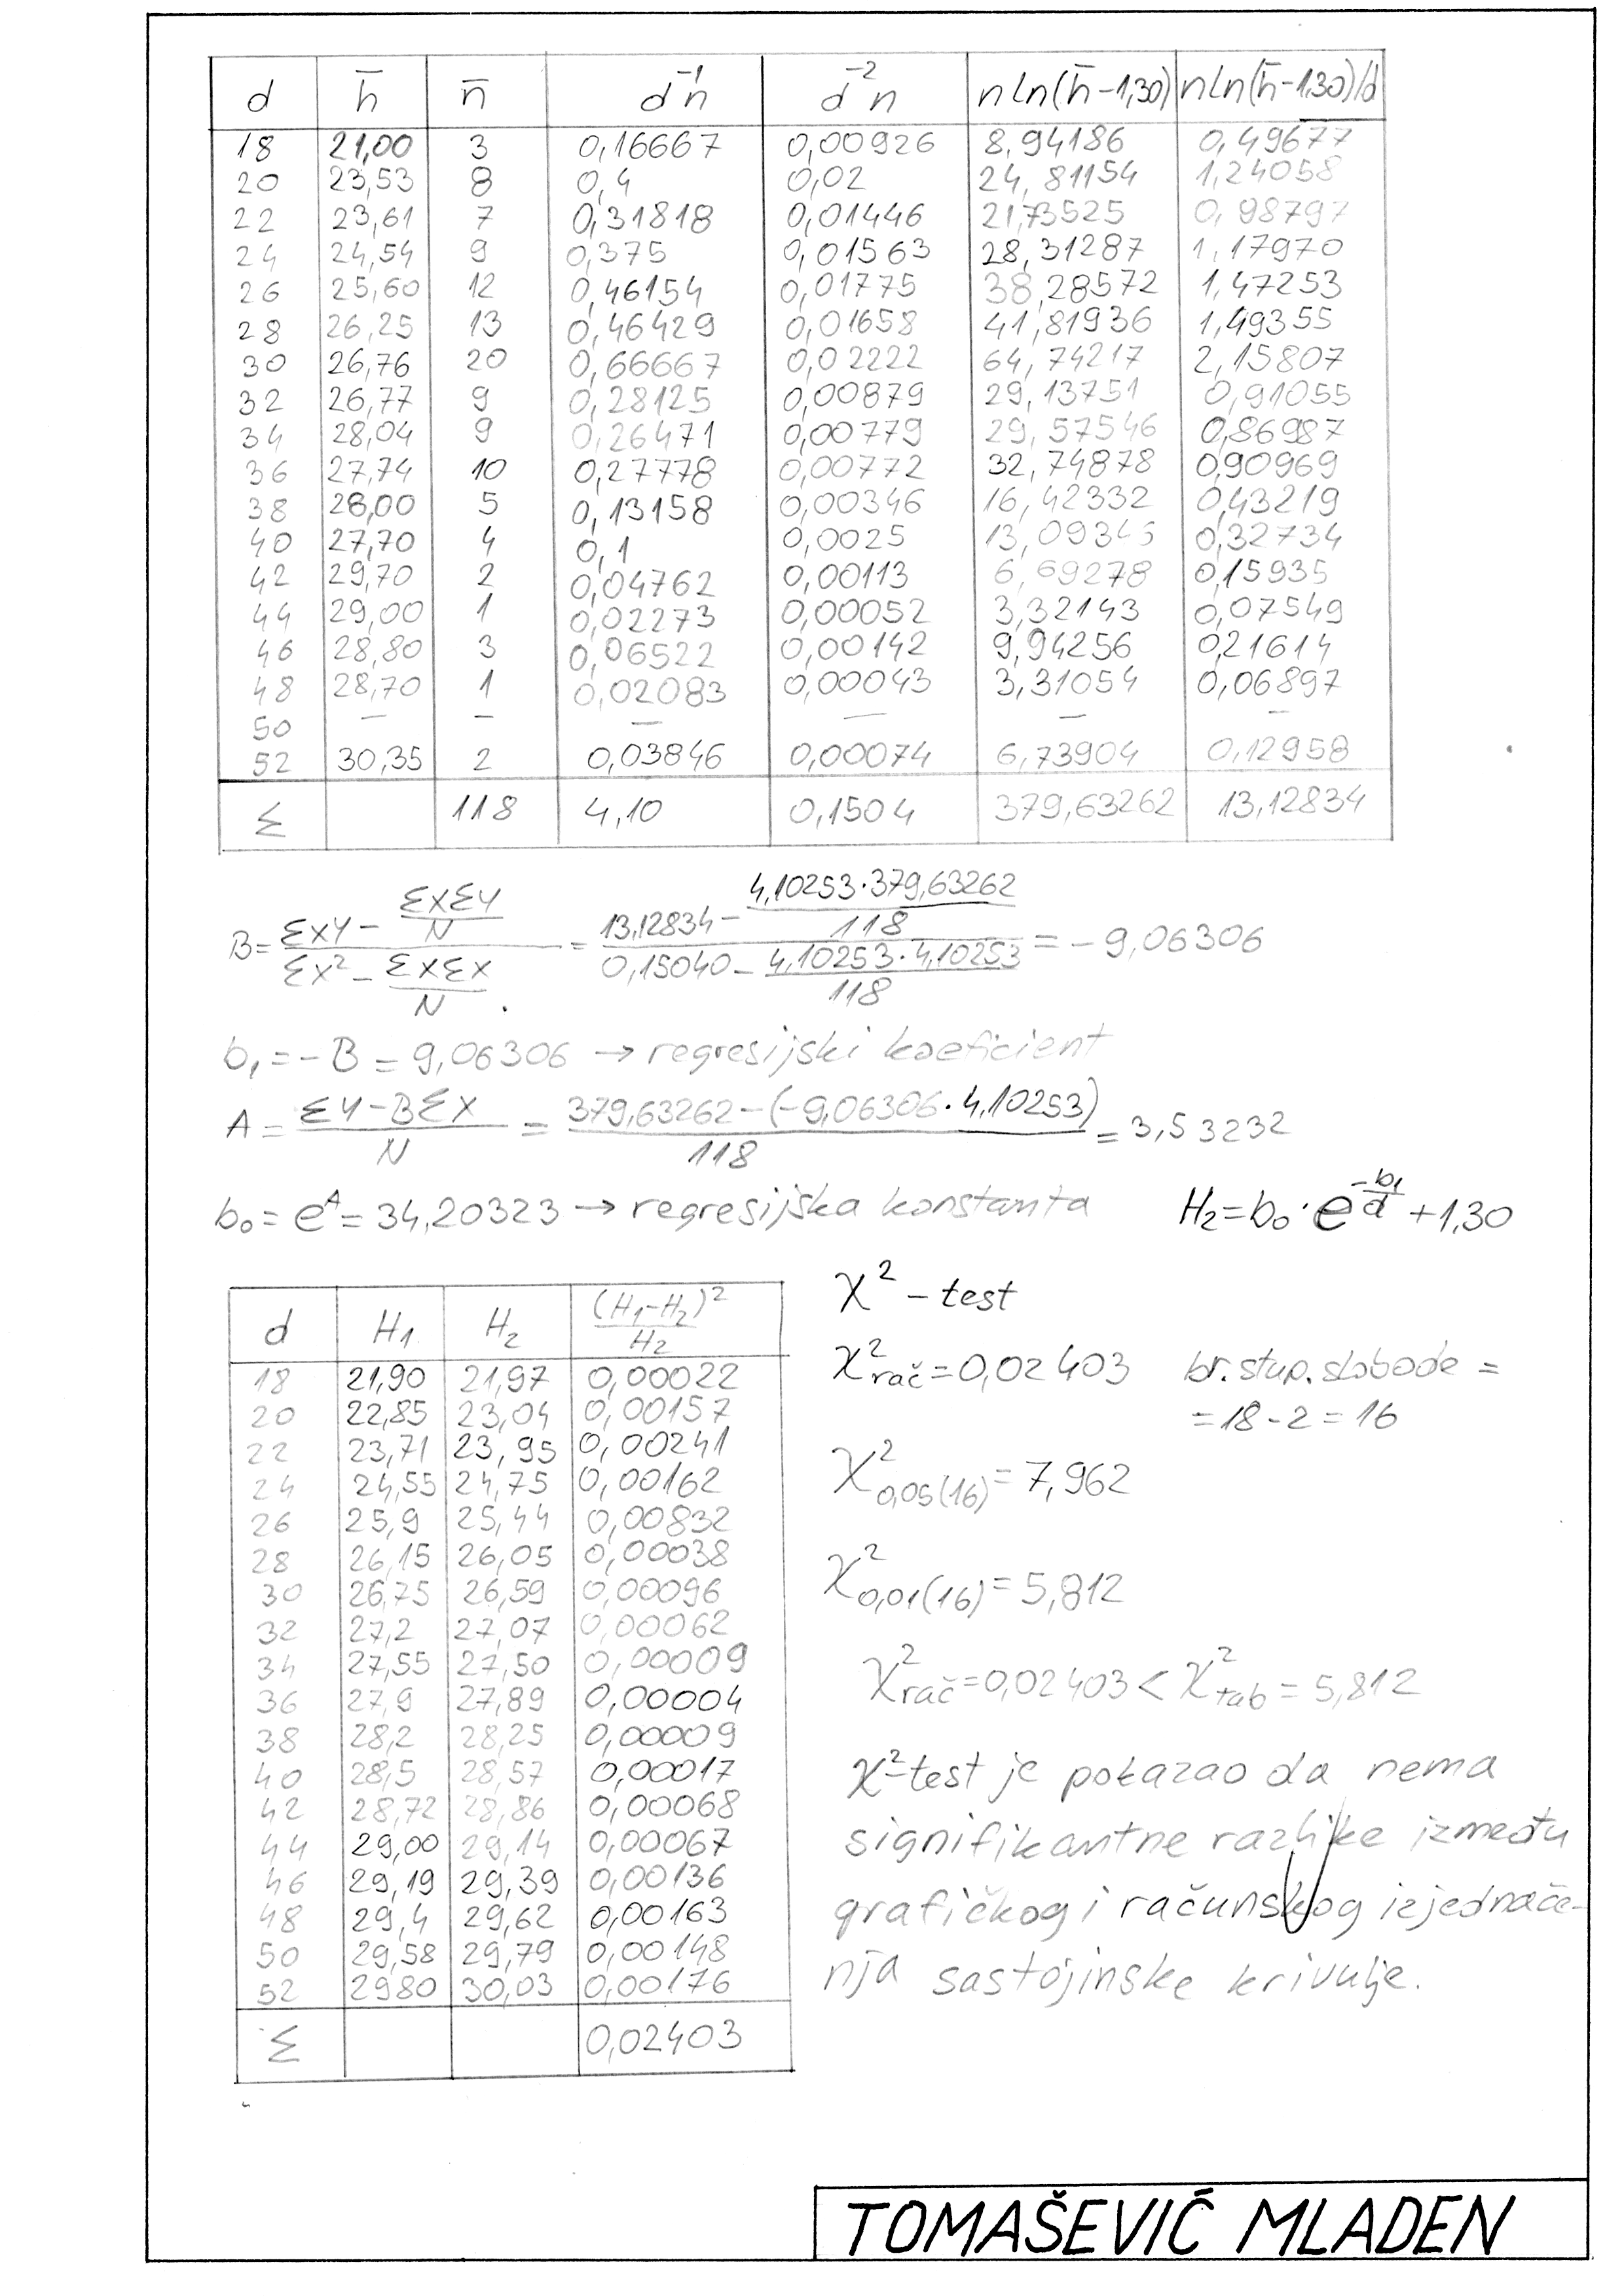 d h̄ n̄ d⁻¹n d⁻²n n ln(h̄-1,30) n ln(h̄-1,30)/d
18 21,00 3 0,16667 0,00926 8,94186 0,49677
20 23,53 8 0,4 0,02 24,81154 1,24058
22 23,61 7 0,31818 0,01446 21,73525 0,98797
24 24,54 9 0,375 0,01563 28,31287 1,17970
26 25,60 12 0,46154 0,01775 38,28572 1,47253
28 26,25 13 0,46429 0,01658 41,81936 1,49355
30 26,76 20 0,66667 0,02222 64,74217 2,15807
32 26,77 9 0,28125 0,00879 29,13751 0,91055
34 28,04 9 0,26471 0,00779 29,57546 0,86987
36 27,74 10 0,27778 0,00772 32,74878 0,90969
38 28,00 5 0,13158 0,00346 16,42332 0,43219
40 27,70 4 0,1 0,0025 13,09345 0,32734
42 29,70 2 0,04762 0,00113 6,69278 0,15935
44 29,00 1 0,02273 0,00052 3,32143 0,07549
46 28,80 3 0,06522 0,00142 9,94256 0,21614
48 28,70 1 0,02083 0,00043 3,31054 0,06897
50 – – – – – –
52 30,35 2 0,03846 0,00074 6,73904 0,12958
Σ 118 4,10 0,1504 379,63262 13,12834
B = (ΣXY - ΣXΣY/N) / (ΣX² - ΣXΣX/N) = (13,12834 - 4,10253·379,63262/118) / (0,15040 - 4,10253·4,10253/118) = -9,06306
b₁ = -B = 9,06306 → regresijski koeficient
A = (ΣY - BΣX)/N = (379,63262 - (-9,06306·4,10253))/118 = 3,53232
b₀ = e^A = 34,20323 → regresijska konstanta H₂ = b₀·e^(-b₁/d) + 1,30
d H₁ H₂ (H₁-H₂)²/H₂
18 21,90 21,97 0,00022
20 22,85 23,04 0,00157
22 23,71 23,95 0,00241
24 24,55 24,75 0,00162
26 25,9 25,44 0,00832
28 26,15 26,05 0,00038
30 26,75 26,59 0,00096
32 27,2 27,07 0,00062
34 27,55 27,50 0,00009
36 27,9 27,89 0,00004
38 28,2 28,25 0,00009
40 28,5 28,57 0,00017
42 28,72 28,86 0,00068
44 29,00 29,14 0,00067
46 29,19 29,39 0,00136
48 29,4 29,62 0,00163
50 29,58 29,79 0,00148
52 29,80 30,03 0,00176
Σ 0,02403
χ² - test
χ²rač = 0,02403 br. stup. slobode =
= 18 - 2 = 16
χ²0,05(16) = 7,962
χ²0,01(16) = 5,812
χ²rač = 0,02403 < χ²tab = 5,812
χ²-test je pokazao da nema
signifikantne razlike između
grafičkog i računskog izjednače-
nja sastojinske krivulje.
TOMAŠEVIĆ MLADEN